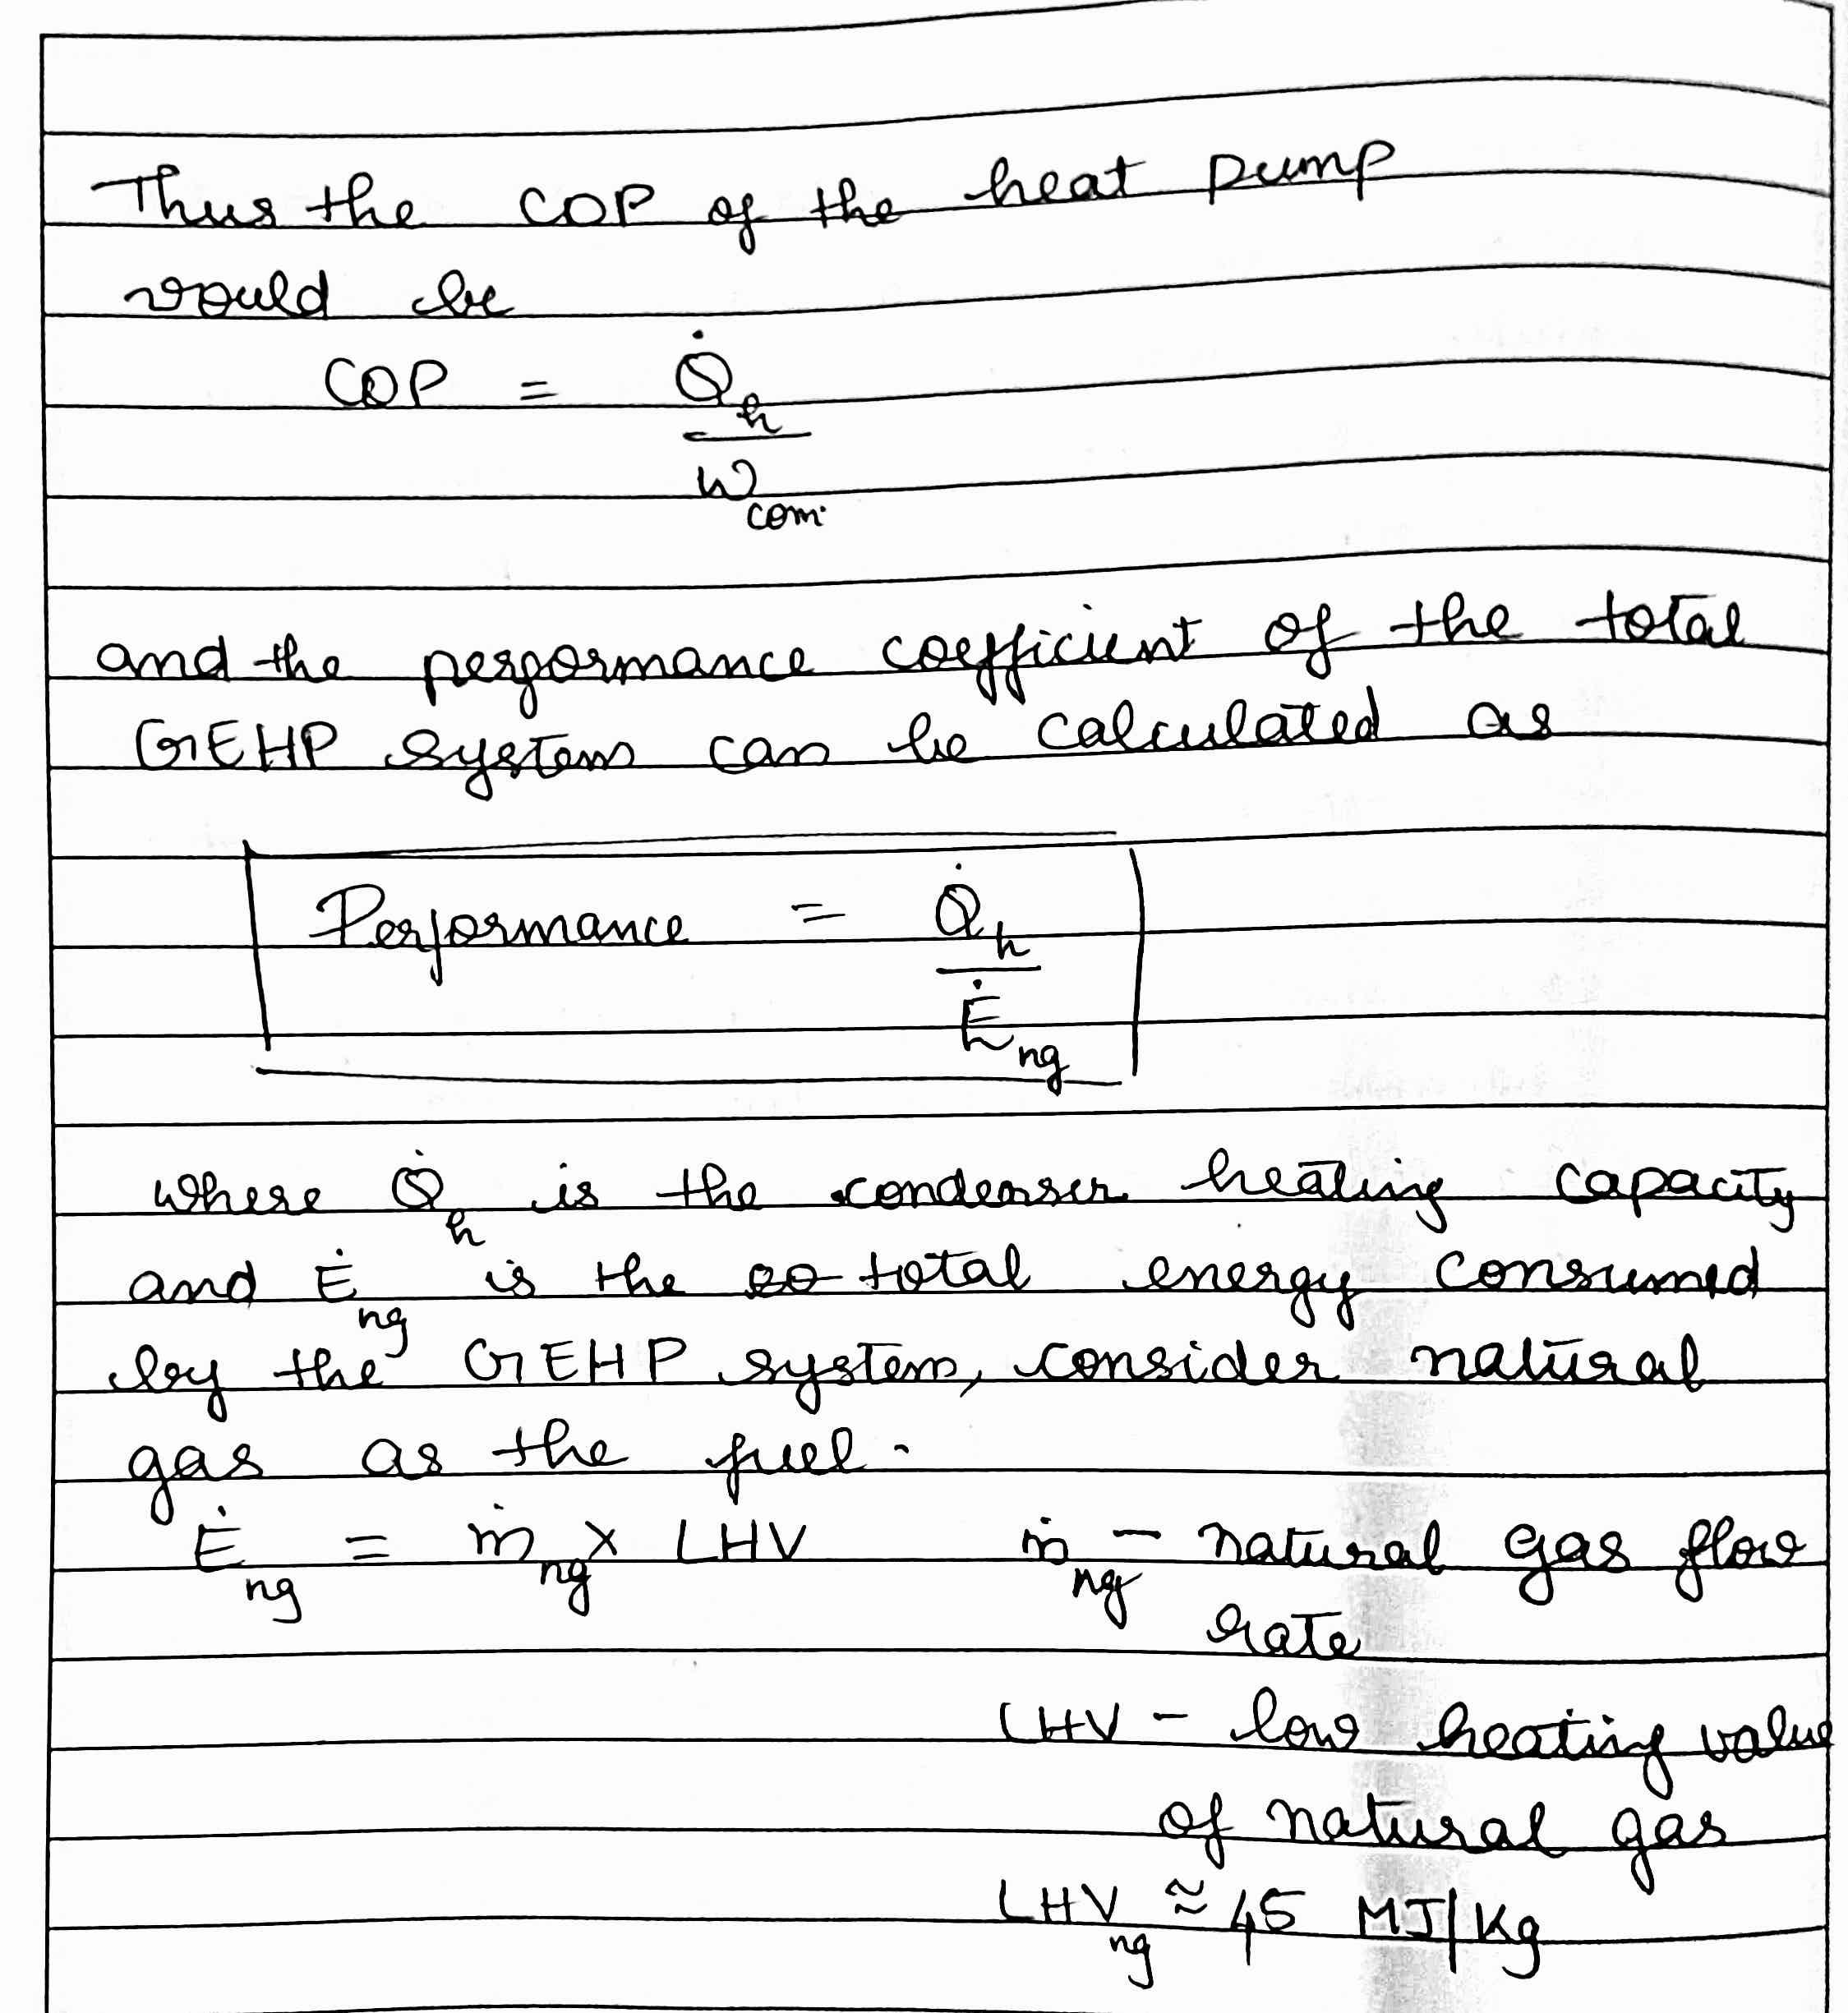 Thus the COP of the heat pump
would be
COP = Q̇h / Wcom.
and the performance coefficient of the total
GEHP system can be calculated as
Performance = Q̇h / Ėng
where Q̇h is the condenser heating capacity
and Ėng is the total energy consumed
by the GEHP system, consider natural
gas as the fuel.
Ėng = ṁng × LHV ṁng – natural gas flow
rate
LHV – low heating value
of natural gas
LHVng ≈ 45 MJ/Kg